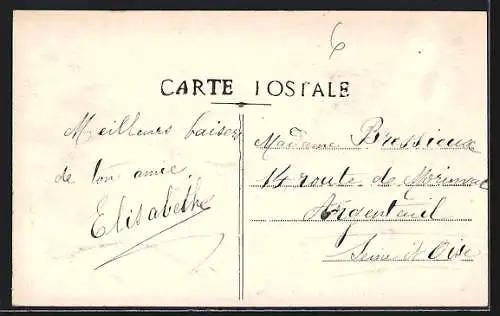 6
CARTE POSTALE
Meilleurs baisers
de ton amie.
Elisabethe
Madame Bressieux
14 route de
Argenteuil
Seine et Oise